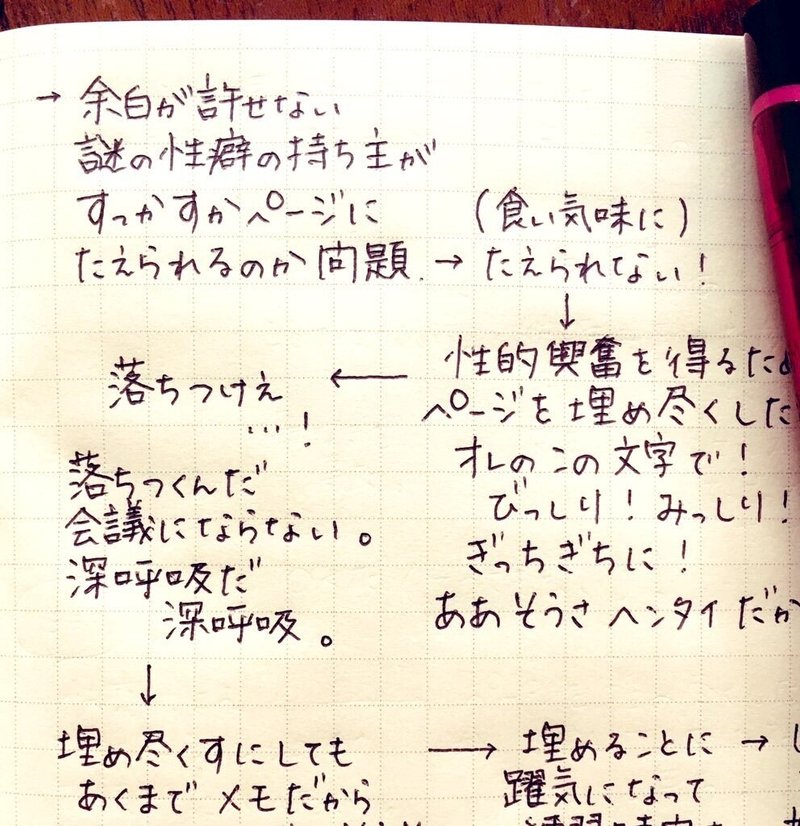 → 余白が許せない
謎の性癖の持ち主が
すっかすかページに
たえられるのか問題. →
(食い気味に)
たえられない!
↓
性的興奮を得るため
ページを埋め尽くした
オレのこの文字で!
びっしり!みっしり!
ぎっちぎちに!
ああそうさヘンタイだか
←
落ちつけえ
…!
落ちつくんだ
会議にならない。
深呼吸だ
深呼吸。
↓
埋め尽くすにしても
あくまでメモだから
→ 埋めることに →
躍気になって